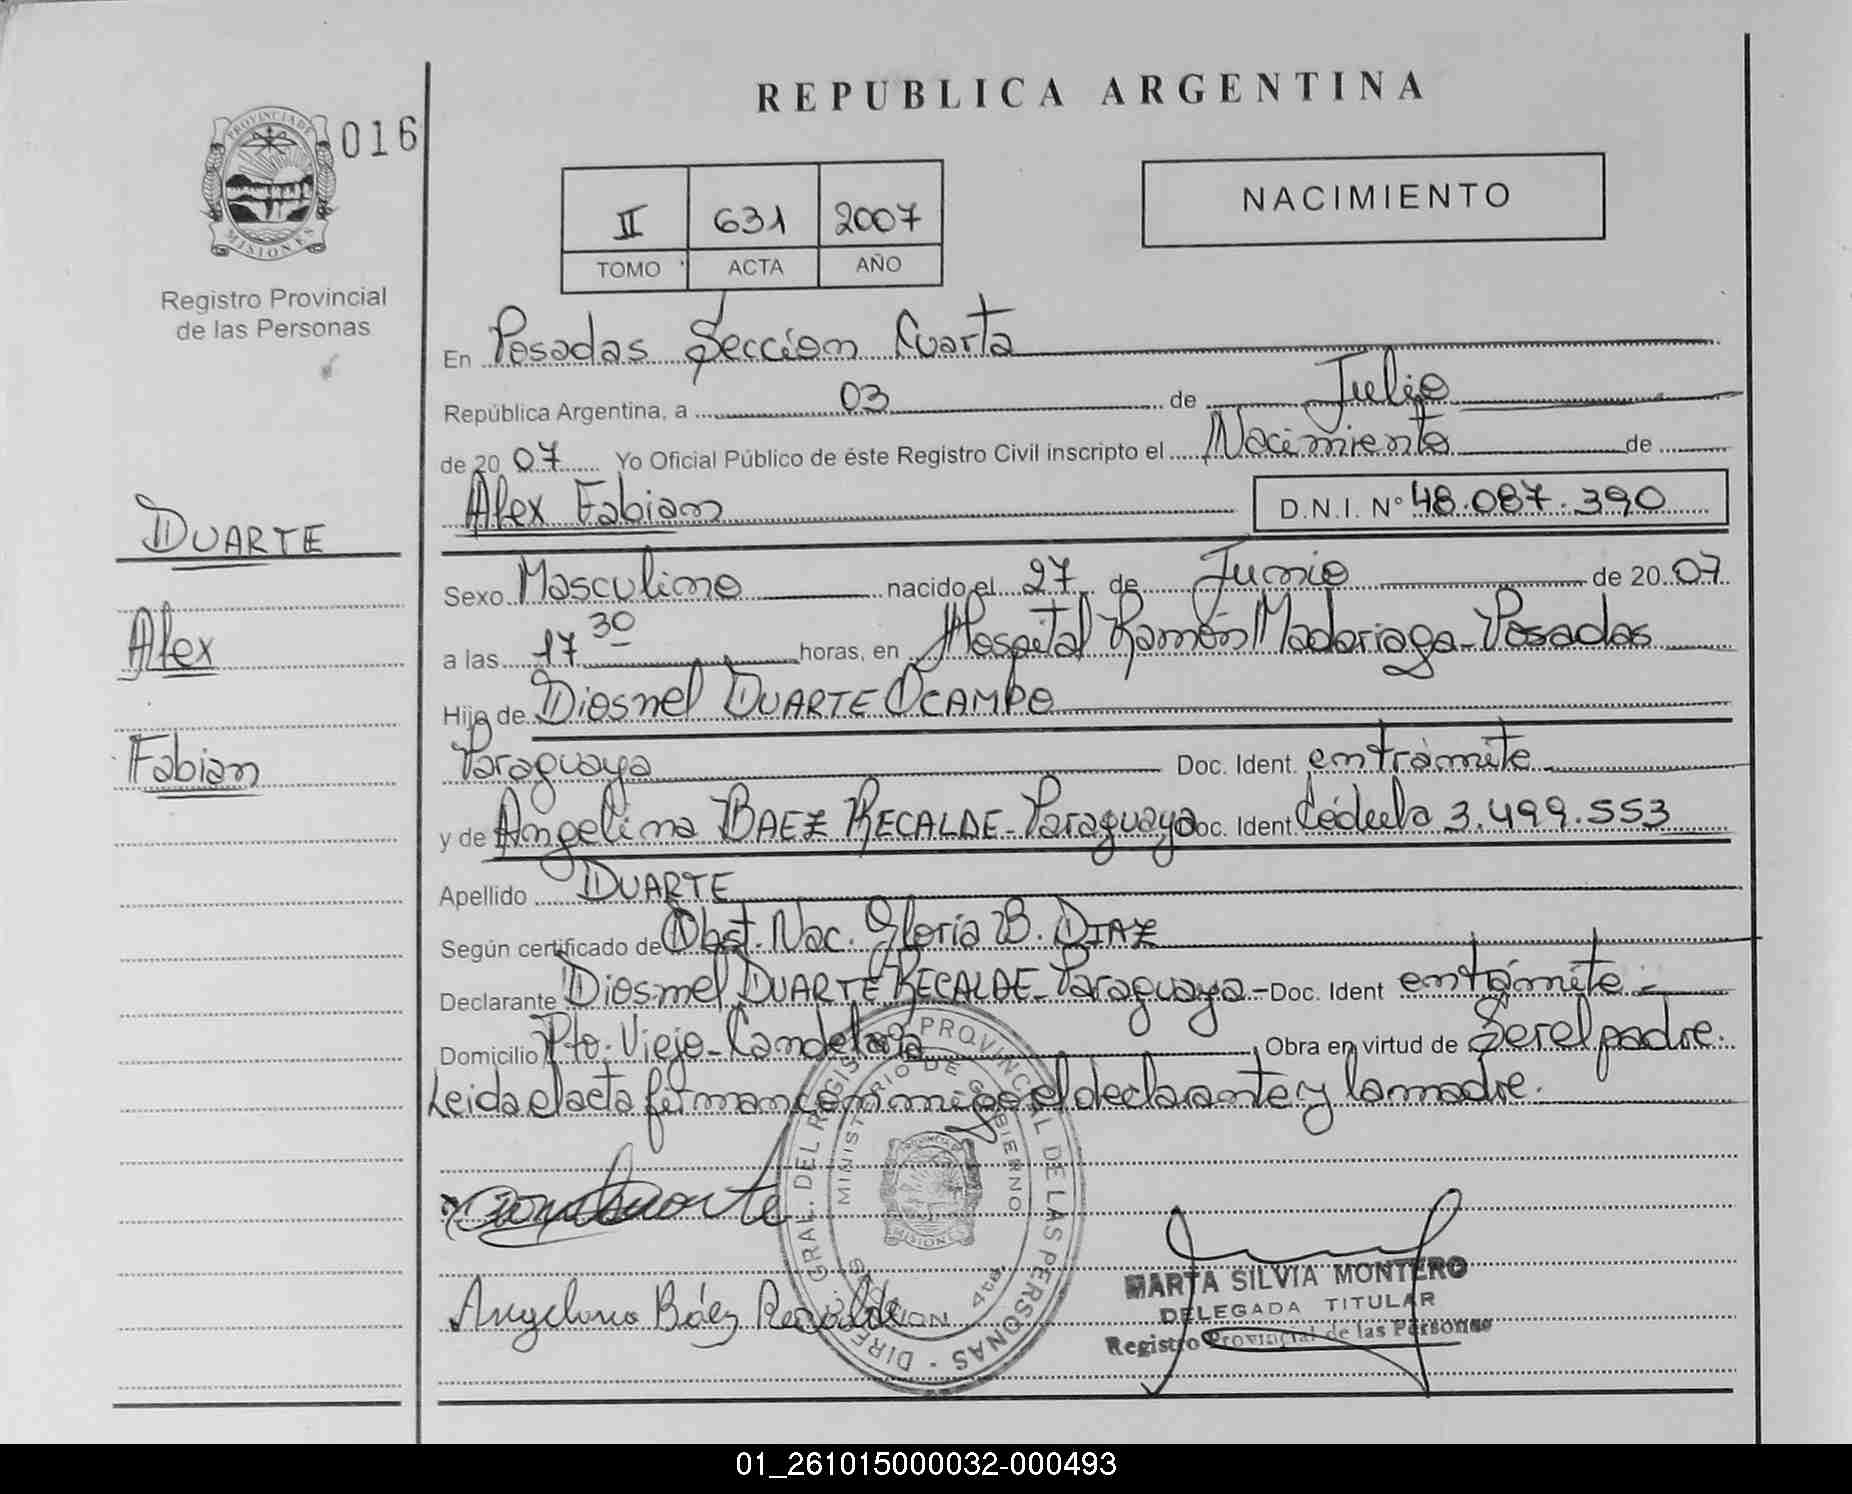 REPUBLICA ARGENTINA
PROVINCIA DE
MISIONES
016
Registro Provincial
de las Personas
II 631 2007
TOMO ACTA AÑO
NACIMIENTO
En Posadas Sección Cuarta
República Argentina, a 03 de Julio
de 20 07 Yo Oficial Público de éste Registro Civil inscripto el Nacimiento de
Alex Fabian D.N.I. N° 48.087.390
DUARTE
Alex
Fabian
Sexo Masculino nacido el 27 de Junio de 20 07
a las 17 30 horas, en Hospital Ramón Madariaga - Posadas
Hijo de Diosnel DUARTE OCAMPO
Paraguaya Doc. Ident. en trámite
y de Angelina BAEZ RECALDE - Paraguaya Doc. Ident Cédula 3.499.553
Apellido DUARTE
Según certificado de Obst. Nac. Gloria B. DIAZ
Declarante Diosnel DUARTE RECALDE - Paraguaya - Doc. Ident en trámite.-
Domicilio Pto. Viejo - Candelaria Obra en virtud de Ser el padre.
Leida el acta firman conmigo el declarante y la madre.
DIREC. GRAL. DEL REGISTRO PROVINCIAL DE LAS PERSONAS
MINISTERIO DE GOBIERNO
SECCION 4ta.
MISIONES
Duarte
Angelina Báez Recalde
MARTA SILVIA MONTERO
DELEGADA TITULAR
Registro Provincial de las Personas
01_261015000032-000493